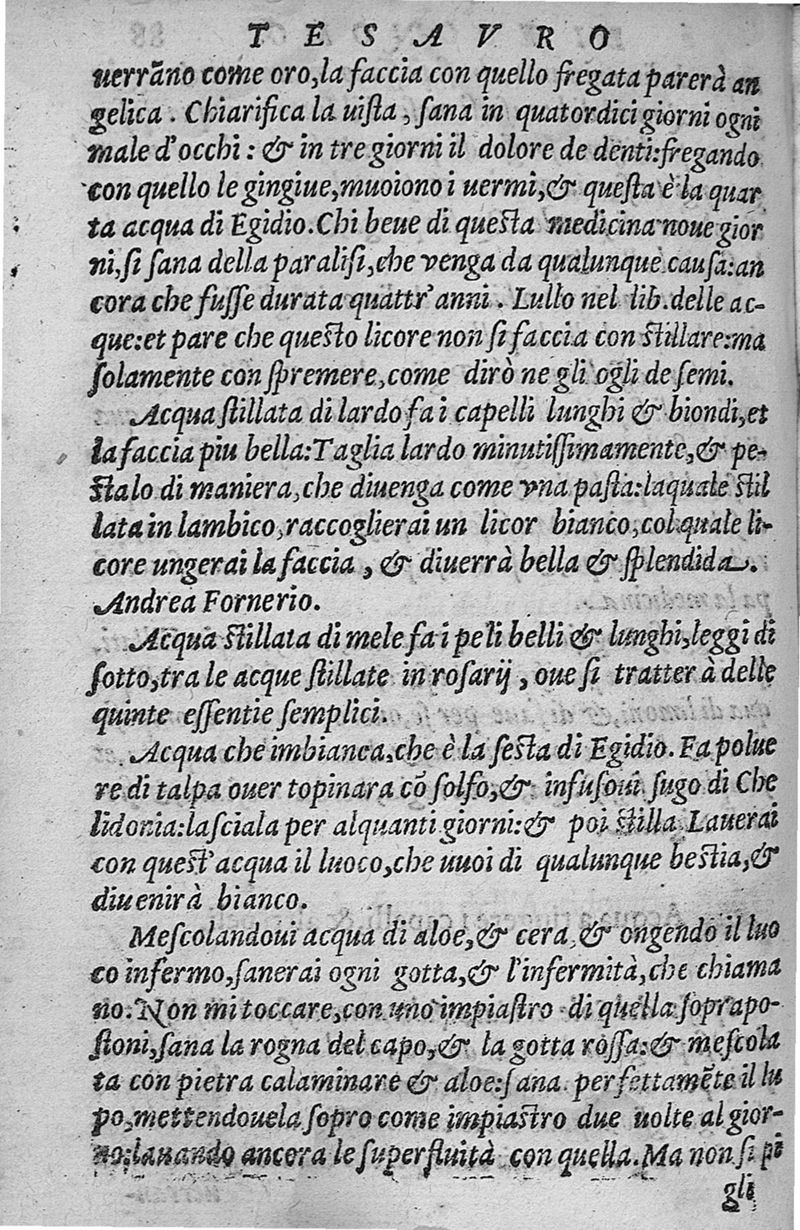 TESAVRO
uerrãno come oro, la faccia con quello fregata parerà an
gelica. Chiarifica la uista, sana in quatordici giorni ogni
male d'occhi: & in tre giorni il dolore de denti: fregando
con quello le gingiue, muoiono i uermi, & questa è la quar
ta acqua di Egidio. Chi beue di questa medicina noue gior
ni, si sana della paralisi, che venga da qualunque causa: an
cora che fusse durata quattr'anni. Lullo nel lib. delle ac-
que: et pare che questo licore non si faccia con stillare: ma
solamente con spremere, come dirò ne gli ogli de semi.
Acqua stillata di lardo fa i capelli lunghi & biondi, et
la faccia piu bella: Taglia lardo minutissimamente, & pe-
stalo di maniera, che diuenga come vna pasta: laquale stil
lata in lambico, raccoglierai un licor bianco, col quale li-
core ungerai la faccia, & diuerrà bella & splendida.
Andrea Fornerio.
Acqua stillata di mele fa i peli belli & lunghi, leggi di
sotto, tra le acque stillate in rosarij, oue si tratterà delle
quinte essentie semplici.
Acqua che imbianca, che è la sesta di Egidio. Fa polue
re di talpa ouer topinara cõ solfo, & infusoui sugo di Che
lidonia: lasciala per alquanti giorni: & poi stilla. Lauerai
con quest'acqua il luoco, che uuoi di qualunque bestia, &
diuenirà bianco.
Mescolandoui acqua di aloe, & cera, & ongendo il luo
co infermo, sanerai ogni gotta, & l'infermità, che chiama
no. Non mi toccare, con uno impiastro di quella soprapo-
stoni, sana la rogna del capo, & la gotta rossa: & mescola
ta con pietra calaminare & aloe: sana perfettamẽte il lu
po, mettendouela sopro come impiastro due uolte al gior-
no: lauando ancora le superfluità con quella. Ma non si pi
gli